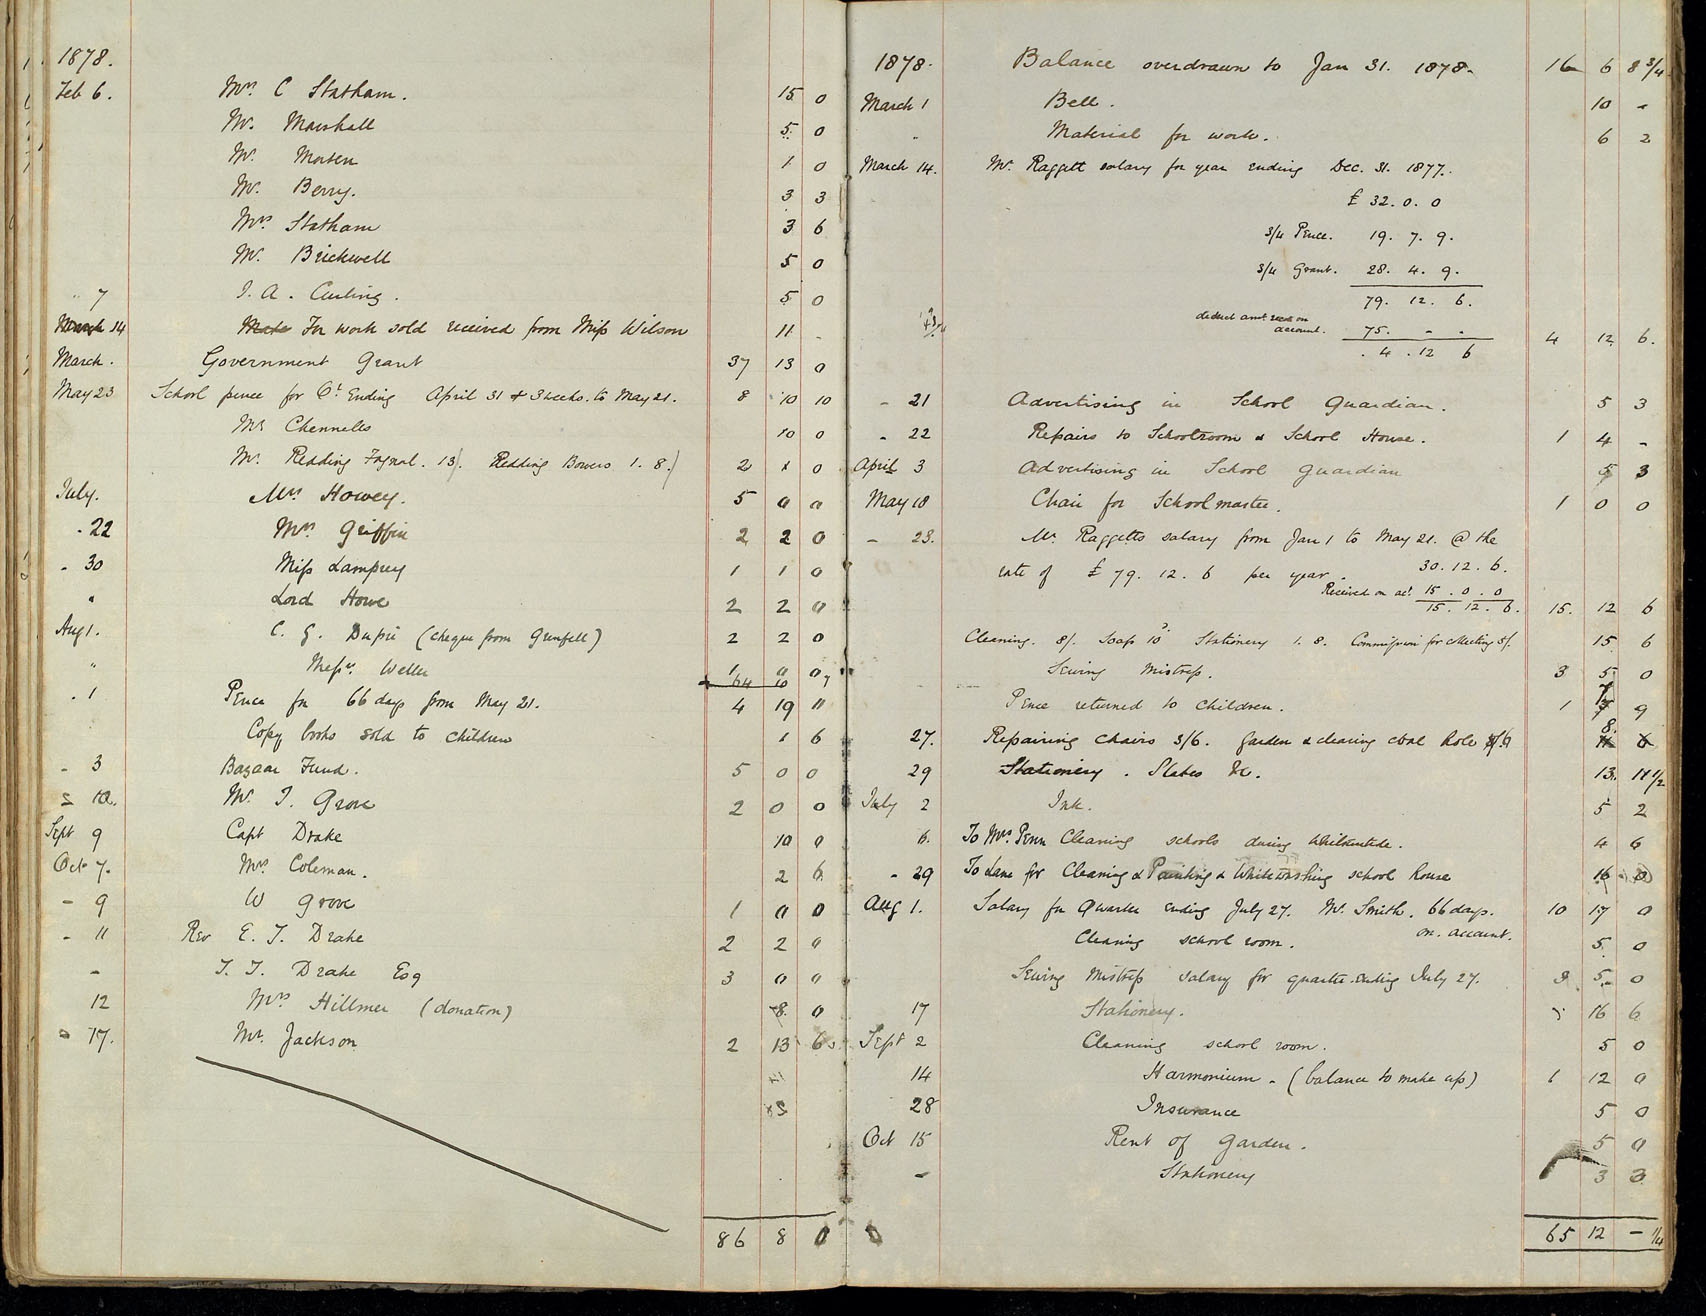 1878.
Feb 6. Mrs. C Statham. 15 0
Mr. Marshall 5 0
Mr. Morten 1 0
Mr. Berry. 3 3
Mrs Statham 3 6
Mr. Brickwell 5 0
" 7 J. A. Curling. 5 0
March 14 For work sold received from Miss Wilson 11 -
March. Government Grant 37 13 0
May 23 School pence for Qt Ending April 31 & 3 weeks. to May 21. 8 10 10
Mr Chennells 10 0
Mr. Redding Fagnal. 13/. Redding Bowers 1. 8./ 2 1 0
July. Mrs Howey. 5 0 0
- 22 Mrs Griffin 2 2 0
- 30 Miss Lamprey 1 1 0
" Lord Howe 2 2 0
Aug 1. C. G. Dupré (cheque from Grenfell) 2 2 0
" Messrs. Weller 1 0 0
64 10 7
- 1 Pence for 66 days from May 21. 4 19 11
Copy books sold to children 1 6
- 3 Bazaar Fund. 5 0 0
- 10. Mr. J. Grove 2 0 0
Sept 9 Capt Drake 10 0
Oct 7. Mrs. Coleman. 2 6
- 9 W Grove 1 0 0
- 11 Rev E. T. Drake 2 2 0
- T. T. Drake Esq 3 0 0
12 Mrs Hillmer (donation) 8 0
- 17. Mr. Jackson 2 13 6
86 8 0
1878. Balance overdrawn to Jan 31. 1878. 16 6 8 3/4
March 1 Bell. 10 -
" Material for work. 6 2
March 14. Mr. Raggett salary for year ending Dec. 31. 1877.
£ 32. 0. 0
3/4 Pence. 19. 7. 9.
3/4 Grant. 28. 4. 9.
79. 12. 6.
deduct amt. recd on
account. 75. - - 4 12 6.
. 4 . 12 6
- 21 Advertising in School Guardian. 5 3
- 22 Repairs to Schoolroom & School House. 1 4 -
April 3 Advertising in School Guardian 5 3
May 18 Chair for Schoolmaster. 1 0 0
- 23. Mr. Raggetts salary from Jan 1 to May 21. @ the
rate of £ 79. 12. 6 per year. 30. 12. 6.
Received on act. 15. 0. 0
15. 12. 6. 15. 12 6
Cleaning. 8/. Soap 10 Stationery 1. 8. Commission for Meeting 5/. 15 6
Sewing Mistress. 3 5 0
Pence returned to children. 1 7 9
27. Repairing chairs 3/6. Garden & clearing coal hole 8.
29 Stationery. Slates &c. 13. 11 1/2
July 2 Ink. 5 2
6. To Mrs. Penn Cleaning schools during Whitsuntide. 4 6
- 29 To Lane for Cleaning & Painting & Whitewashing school house 16 0
Aug 1. Salary for Quarter Ending July 27. Mr. Smith. 66 days. 10 17 0
on. account.
Cleaning school room. 5 0
Sewing Mistress salary for quarter ending July 27. 3 5 0
17 Stationery. 16 6
Sept 2 Cleaning school room. 5 0
14 Harmonium - (balance to make up) 1 12 0
28 Insurance 5 0
Oct 15 Rent of Garden. 5 0
- Stationery 3 3
65 12 - 1/4